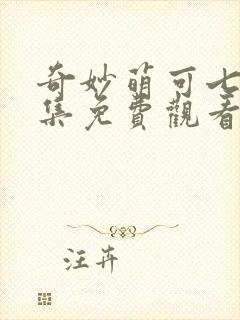 奇妙萌可七
集免費觀看
汪卉